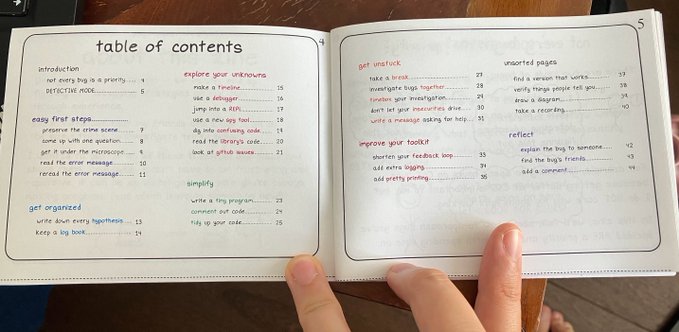 table of contents
4
introduction
not every bug is a priority.... 4
DETECTIVE MODE.... 5
easy first steps....
preserve the crime scene.... 7
come up with one question.... 8
get it under the microscope.... 9
read the error message.... 10
reread the error message.... 11
get organized
write down every hypothesis.... 13
keep a log book.... 14
explore your unknowns
make a timeline.... 15
use a debugger.... 16
jump into a REPL.... 17
use a new spy tool.... 18
dig into confusing code.... 19
read the library's code.... 20
look at github issues.... 21
simplify
write a tiny program.... 23
comment out code.... 24
tidy up your code.... 25
5
get unstuck
take a break.... 27
investigate bugs together.... 28
timebox your investigation.... 29
don't let your insecurities drive.... 30
write a message asking for help... 31
improve your toolkit
shorten your feedback loop.... 33
add extra logging.... 34
add pretty printing.... 35
unsorted pages
find a version that works.... 37
verify things people tell you.... 38
draw a diagram.... 39
take a recording.... 40
reflect
explain the bug to someone.... 42
find the bug's friends.... 43
add a comment.... 44